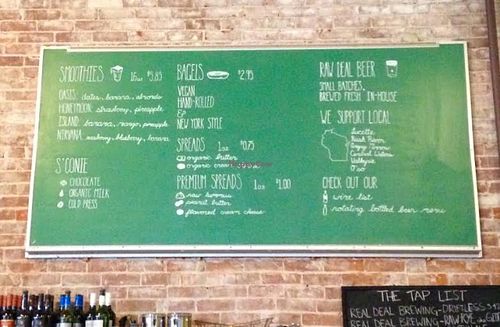 SMOOTHIES 16oz $5.85
OASIS: dates, banana, almonds
HONEYMOON: strawberry, pineapple
ISLAND: banana, mango, pineapple
NIRVANA: raspberry, blueberry, banana
S'CONIE
CHOCOLATE
ORGANIC MILK
COLD PRESS
BAGELS $2.95
VEGAN
HAND-ROLLED
&
NEW YORK STYLE
SPREADS 1oz $0.75
organic butter
organic cream
PREMIUM SPREADS 1oz $1.00
raw hummus
peanut butter
flavored cream cheese
RAW DEAL BEER
SMALL BATCHES,
BREWED FRESH IN-HOUSE
WE SUPPORT LOCAL
Lucette
Central Waters
O'so
CHECK OUT OUR
wine list
rotating bottled beer menu
THE TAP LIST
REAL DEAL BREWING-DRIFTLESS
REAL DEAL BREWING-RAW RYE